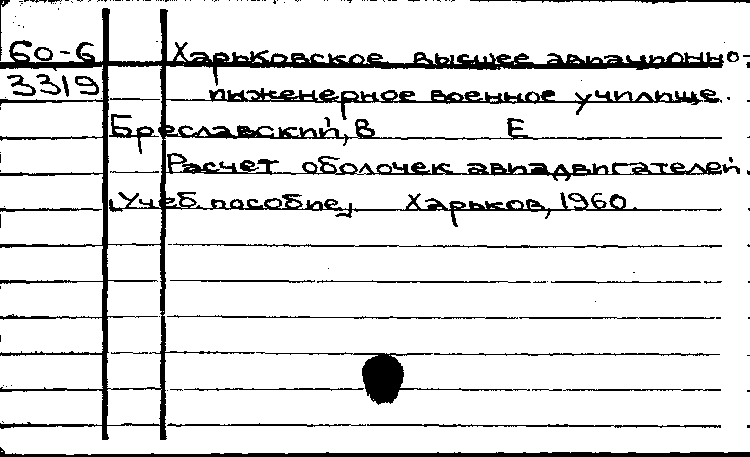 60-6 Харьковское высшее авиационно-
3319 инженерное военное училище.
Бреславский, В Е
Расчет оболочек авиадвигателей.
[Учеб. пособие] Харьков, 1960.